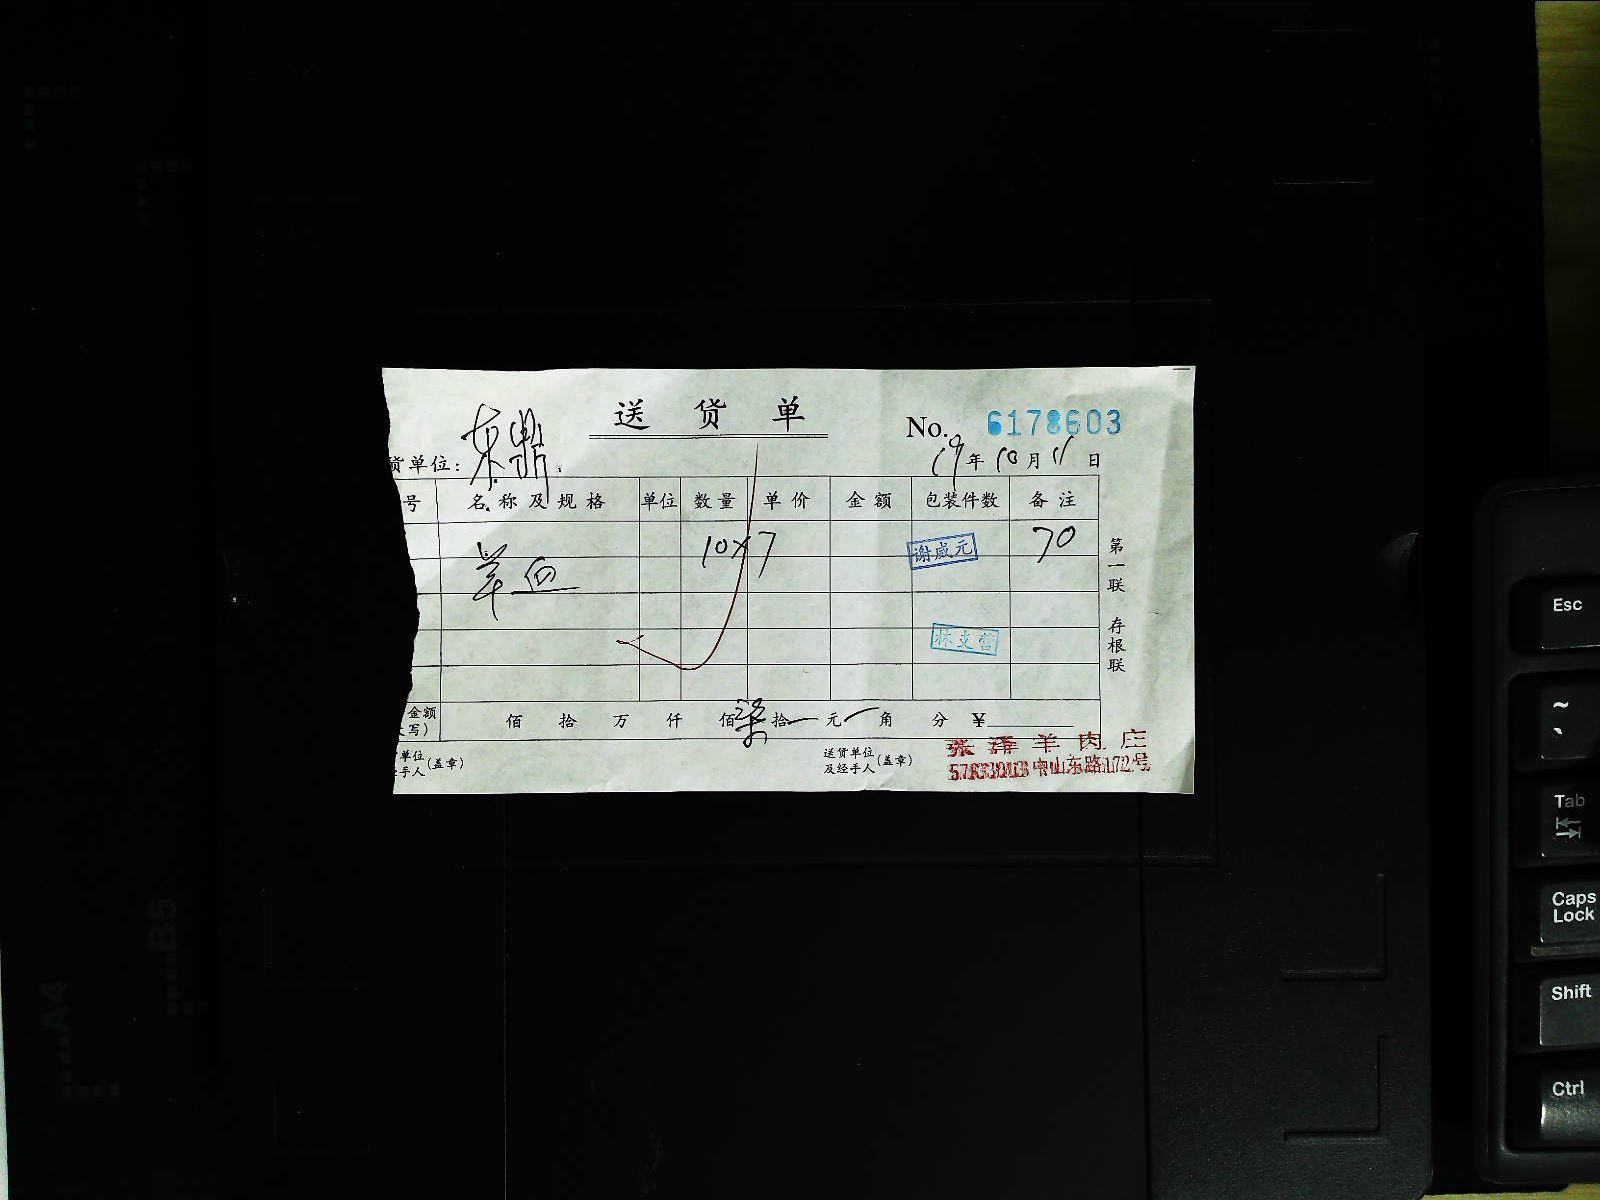 送货单
No. 6178603
货单位：东鼎
19年10月11日
号 名称及规格 单位 数量 单价 金额 包装件数 备注
羊血 10×7 70
谢威元
林支营
金额 佰 拾 万 仟 佰 柒拾 元 角 分 ¥
大写）
单位
经手人（盖章）
送货单位
及经手人（盖章）
张泽羊肉庄
中山东路172号
第一联 存根联
Esc
~
`
Tab
Caps Lock
Shift
Ctrl
B5
A4